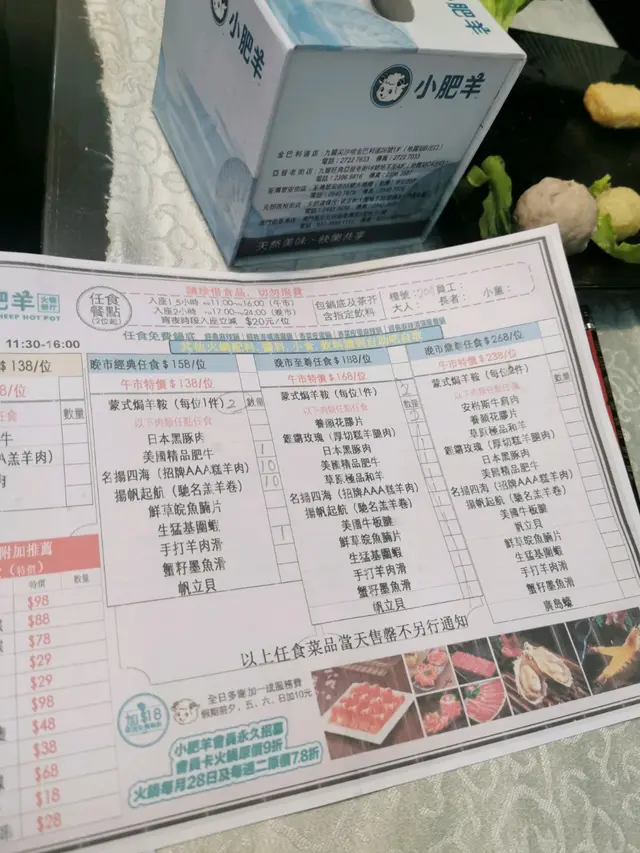 小肥羊
小肥羊
小肥羊
天然美味 · 快樂共享
肥羊
火鍋
餐厅
SHEEP HOT POT
任食
餐點
(2位起)
請珍惜食品，切勿浪費
包鍋底及茶芥
含指定飲料
樓號：
員工：
大人：
長者：
小童：
任食免費鍋底
11:30-16:00
$138/位
晚市經典任食$158/位
午市特價$138/位
數量
蒙式焗羊鞍（每位1件）2
以下肉類任點任食
日本黑豚肉
美國精品肥牛 1
名揚四海（招牌AAA糕羊肉）10
揚帆起航（馳名羔羊卷）10
鮮草皖魚腩片
生猛基圍蝦
手打羊肉滑 1
蟹籽墨魚滑
帆立貝
晚市至尊任食$188/位
午市特價$168/位
數量
蒙式焗羊鞍（每位1件）2
以下肉類任點任食
養顏花膠片
鏗鏘玫瑰（厚切糕羊腿肉）
日本黑豚肉
美國精品肥牛
草原極品和羊
名揚四海（招牌AAA糕羊肉）
揚帆起航（馳名羔羊卷）
美國牛板腱
鮮草皖魚腩片
生猛基圍蝦
手打羊肉滑
蟹籽墨魚滑
帆立貝
晚市尊彩任食$268/位
午市特價$238/位
數量
蒙式焗羊鞍（每位2件）
安格斯牛肩肉
養顏花膠片
草原極品和羊
鏗鏘玫瑰（厚切糕羊腿肉）
日本黑豚肉
美國精品肥牛
名揚四海（招牌AAA糕羊肉）
揚帆起航（馳名羔羊卷）
美國牛板腱
帆立貝
鮮草皖魚腩片
生猛基圍蝦
手打羊肉滑
蟹籽墨魚滑
廣島蠔
以上任食菜品當天售罄不另行通知
附加推薦
（特價）
特價
數量
$98
$88
$78
$29
$29
$98
$48
$38
$68
$18
$28
加$18
全日多謝加一成服務費
假期前夕，五、六、日加10元
小肥羊會員永久招募
會員卡火鍋原價9折
火鍋每月28日及每週二原價7.8折